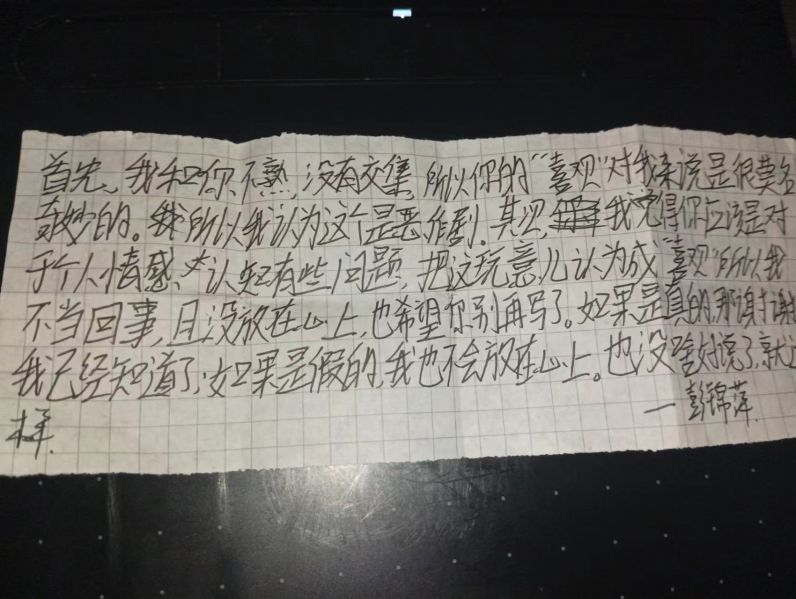 首先、我和你不熟,没有交集,所以你的“喜欢”对我来说是很莫名
奇妙的。所以我认为这个是恶作剧。其次,我觉得你应该是对
于个人情感、认知有些问题,把这玩意儿认为成“喜欢”所以我
不当回事,且没放在心上,也希望你别再写了。如果是真的,那谢谢
我已经知道了,如果是假的,我也不会放在心上。也没啥好说了,就这
样.
—彭锦萍.